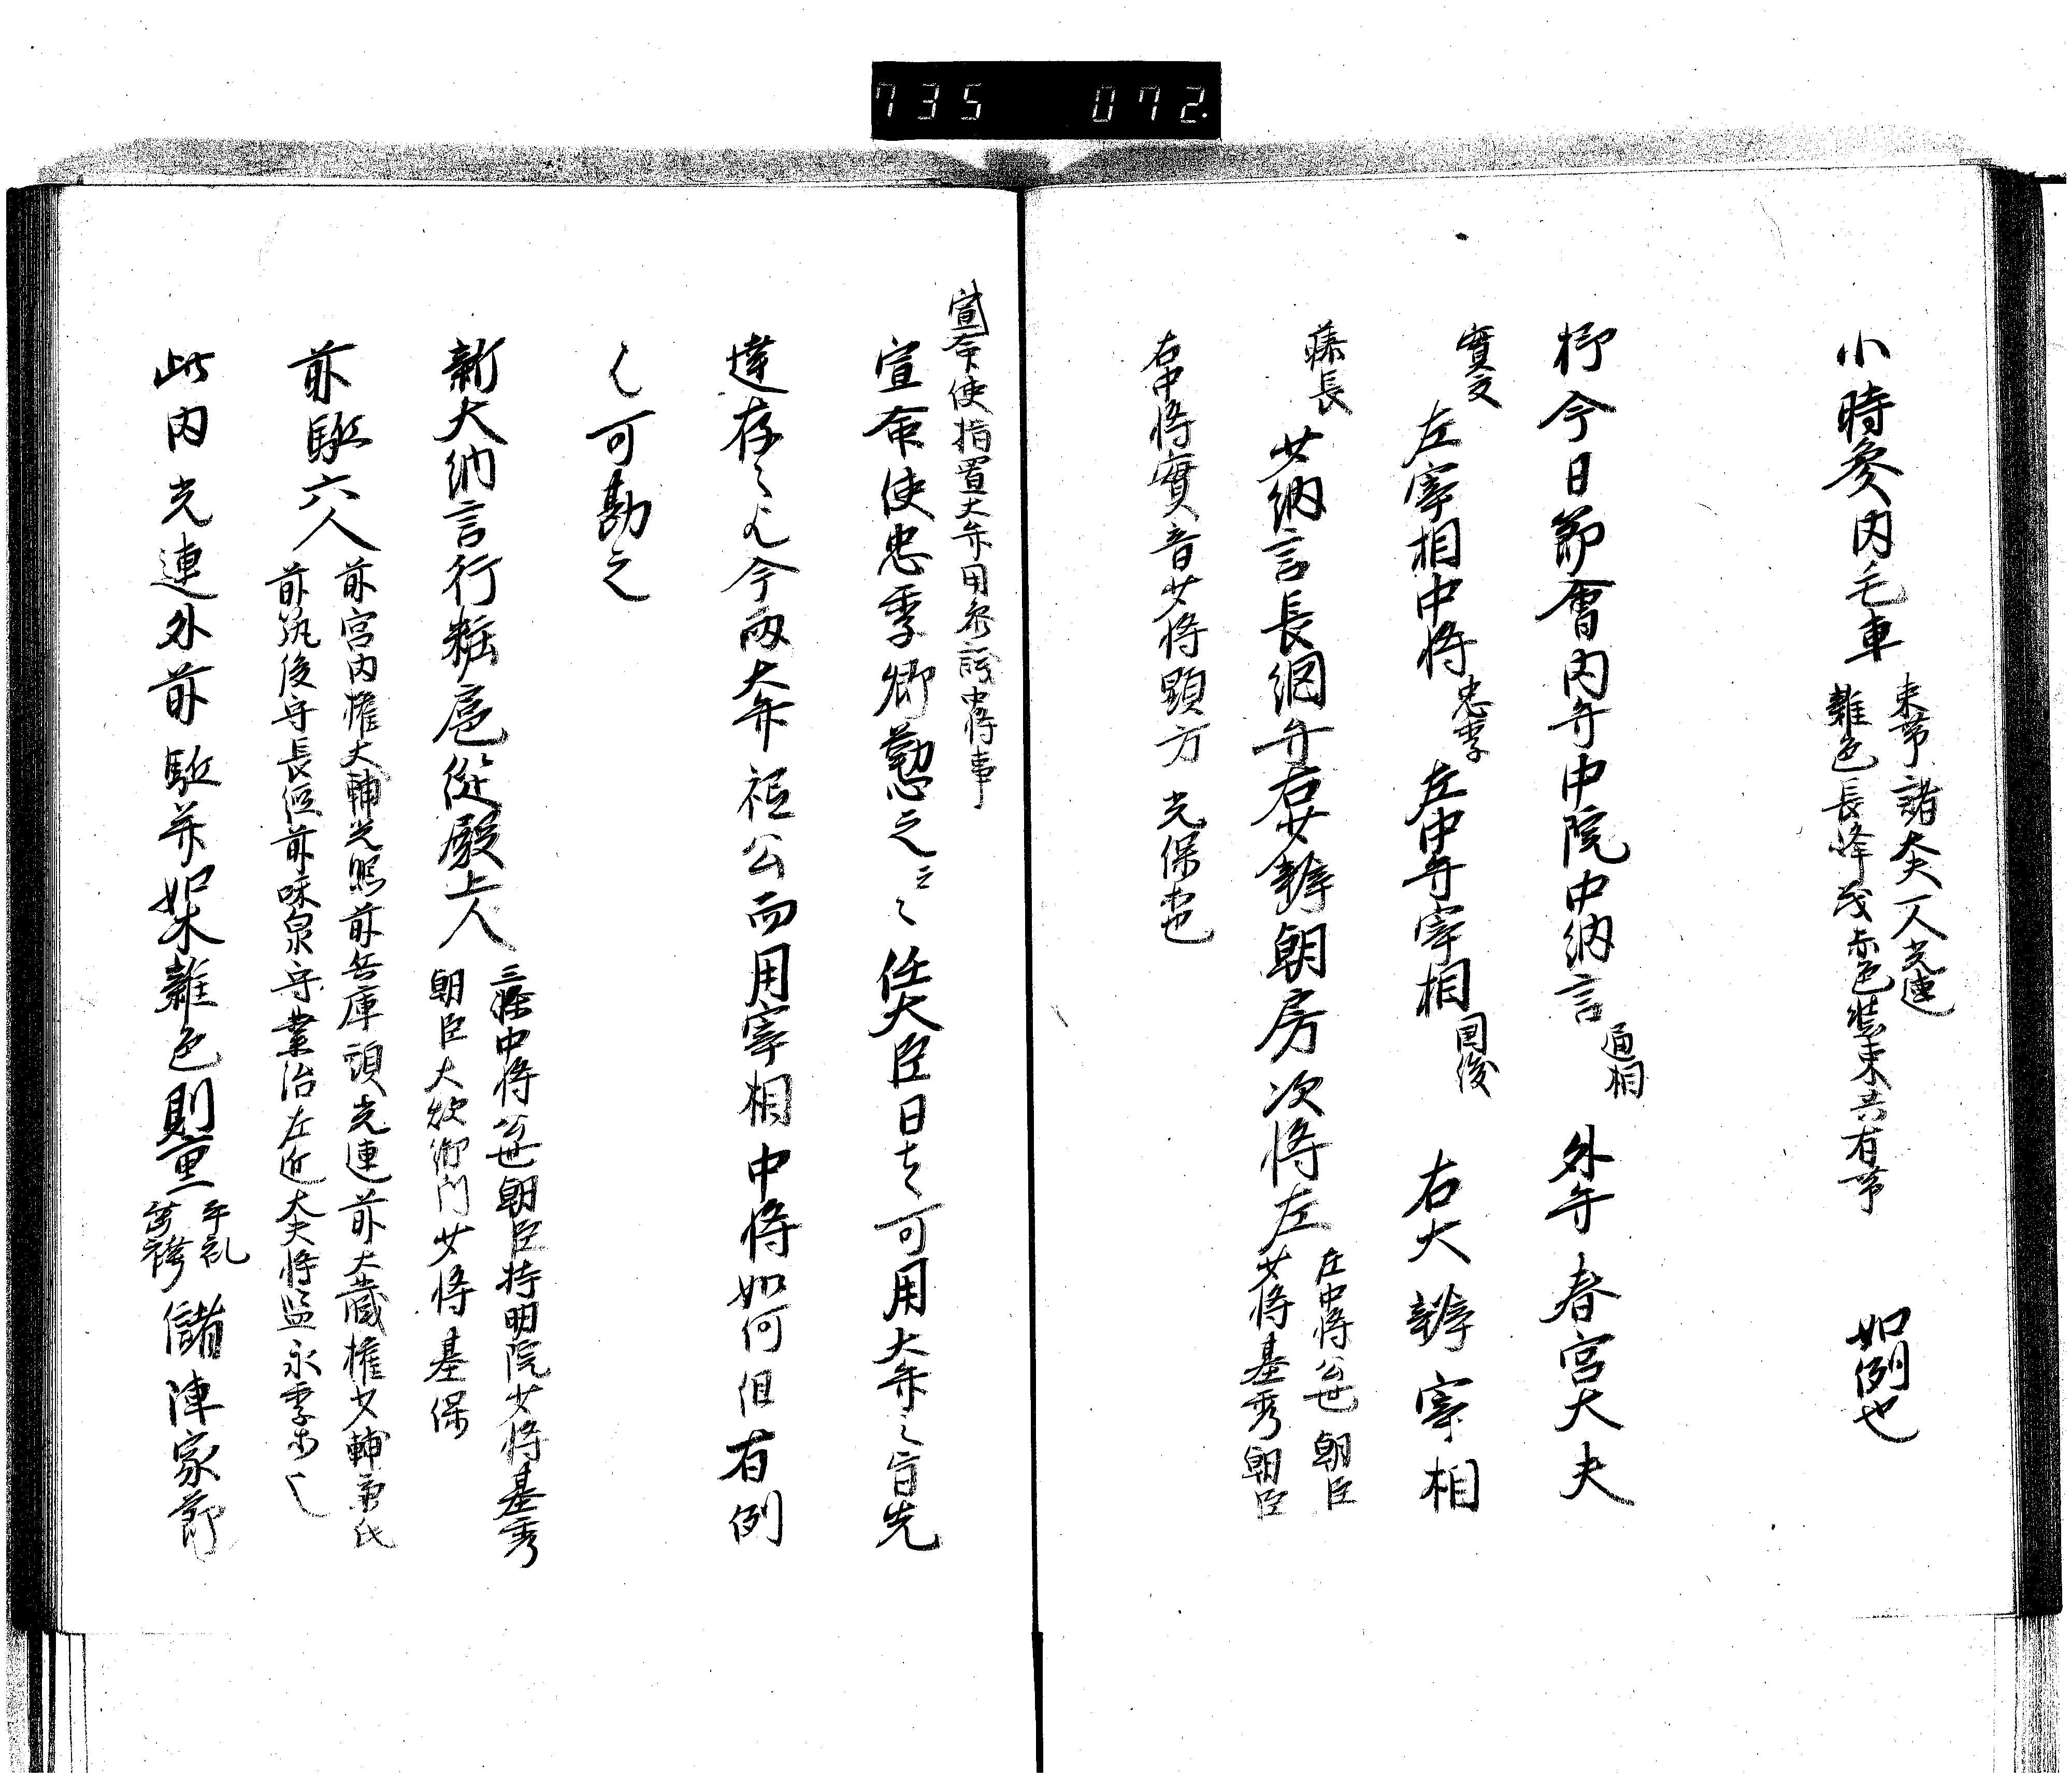 735 072.
小時參内毛車
束帯諸大夫一人光連
雑色長峰茂赤色装束共有帯
如例也
抑今日節會内弁中院中納言通相 外弁 春宮大夫
實文 左宰相中将忠季 左中弁宰相国俊 右大辨宰相
藤長 少納言長綱弁右少辨朝房次将左
左中将公世朝臣
少将基秀朝臣
右中将實音少将顕方 光保也
宣命使指置大弁用参議中将事
宣命使忠季卿勤之 任大臣日者可用大弁之旨先
達存之今両大弁祗公而用宰相中将如何但有例
可勘之
新大納言行粧扈從殿上人
三條中将公世朝臣持明院少将基秀
朝臣大炊御門少将基保
前駈六人
前宮内権大輔光熈前兵庫頭光連前大蔵権少輔
前筑後守長 前和泉守業治左近大夫将監永季
此内光連外前駈并如木雑色則重
平礼
袴
儲陣家節